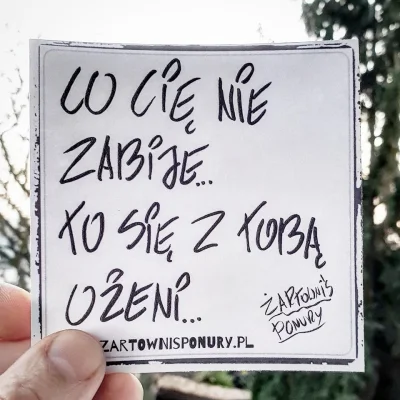 CO CIĘ NIE
ZABIJE...
TO SIĘ Z TOBĄ
OŻENI...
ŻARTOWNIŚ
PONURY
ZARTOWNISPONURY.PL